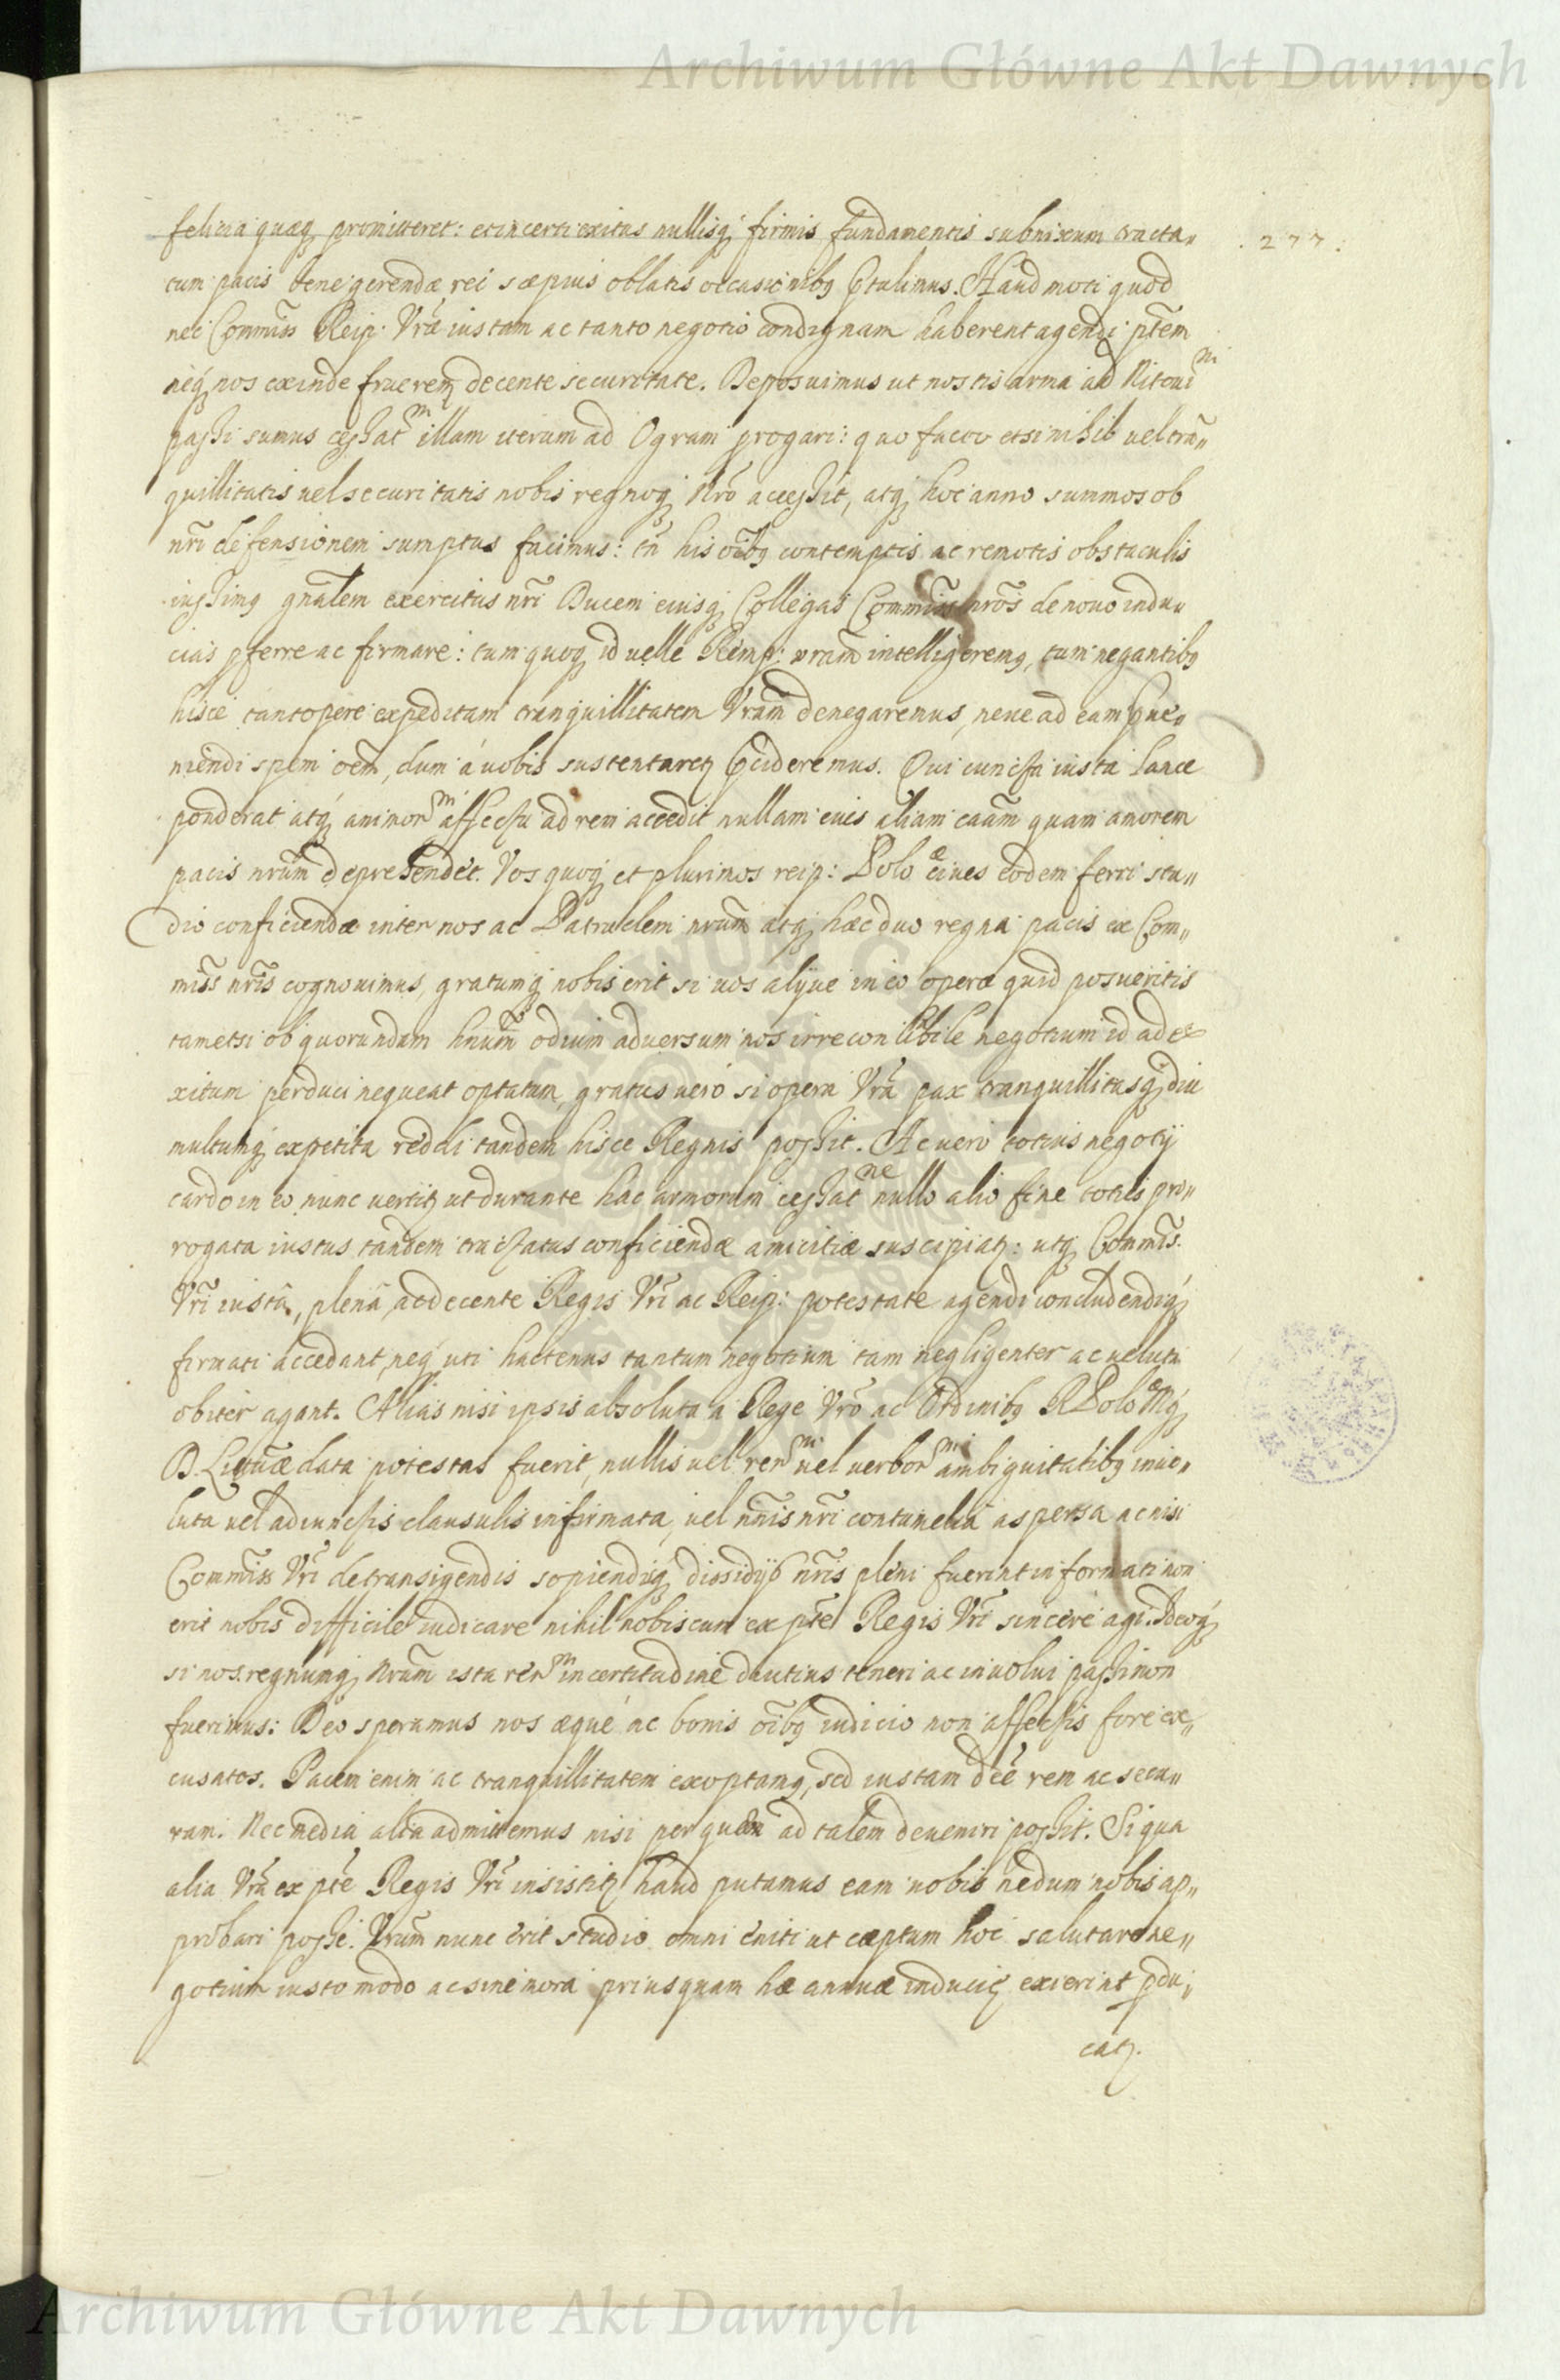 Archiwum Główne Akt Dawnych
.277.
felicia quæq promitteret: et incerti exitus nullisq firmis fundamentis subnixum tracta„
tum pacis bene gerendæ rei sæpius oblatis occasionibq ꝑtulimus. Haud moti quod
nec Commiss̃ Reip: Vrã iustam ac tanto negotio condignam haberent agendi ptẽm
neq nos exinde frueremur decente securitate. Deposuimus ut nostis arma ad Mitoui^m
passi sumus cessat^m illam iterum ad Ogram progari: quo facto etsi nihil vel trã„
quillitatis vel securitatis nobis regnoq Nrõ accessit, atq hoc anno summos ob
nri defensionem sumptus facimus: tñ his oĩbq contemptis ac remotis obstaculis
iussimq gñalem exercitus nrĩ Ducem eiusq Collegas Commiss̃ nrõs de novo indu„
cias ꝓferre ac firmare: tum quoq id velle Remp: vram̃ intelligeremq, tum negantibq
hisce tantopere expeditam tranquillitatem Vram̃ denegaremus, neve ad eam ꝑve„
niendi spem oẽm, dum á vobis sustentaretur ꝑcideremus. Qui cuncta iusta lance
ponderat atq animor^m affectu ad rem accedit nullam eius aliam caãm quam amorem
pacis nrum̃ deprehendet. Vos quoq et plurimos reip: Polo^æ cives eodem ferri stu„
dio conficiendæ inter nos ac Patruelem nrum̃ atq hæc duo regna pacis ex Com„
miss̃ nrĩs cognovimus, gratumq nobis erit si vos alijve in eo operæ quid posueritis
tametsi ob quorundam hnum̃ odium adversum nos irreconlibile negotium id ad e
xitum perduci nequeat optatum, gratius veró si opera Vrã pax tranquillitasq diu
multumq expetita reddi tandem hisce Regnis possit. Ac vero totius negotij
cardo in eo nunc vertitur ut durante hac armorum cessat^ne nullo alio fine toties pro„
rogata iustus tandem tractatus conficiendæ amicitiæ suscipiatur: utq Commis̃.
Vrĩ iustâ, plenâ, ac decente Regis Vrĩ ac Reip: potestate agendi concludendiq
firmati accedant, neq uti hactenus tantum negotium tam negligenter ac veluti
obiter agant. Aliás nisi ipsis absoluta a Rege Vrõ ac Ordinibq R Polo^æ Mq
D. Lituãæ data potestas fuerit, nullis vel rer^m vel verbor^m ambiguitatibq invo„
luta vel adiunctis clausulis infirmata, vel nñis nrĩ contumelia aspersa ac nisi
Commiss̃ Vrĩ de transigendis sopiendisq dissidijs nrĩs pleni fuerint informati non
erit nobis difficile iudicare nihil nobiscum ex ptẽ Regis Vrĩ sincere agi. Ideoq
si nos regnumq Nrum̃ ista rer^m incertitudine diutius teneri ac involvi passi non
fuerimus: Deo speramus nos æque ac bonis oĩbq iudicio non affectis fore ex„
cusatos. Pacem enim ac tranquillitatem exoptamq, sed iustam dcẽ rem ac secu„
ram. Nec media alia admittemus nisi per quæ ad talem deveniri possit. Si qua
alia Vrã ex ptẽ Regis Vrĩ insistitur haud putamus eam nobis nedum nobis ap„
probari posse. Vrum̃ nunc erit studio omni eniti ut cæptum hoc salutare ne„
gotium iusto modo ac sine mora priusquam hæ annuæ induciæ exierint ꝑdu„
catur.
Archiwum Główne Akt Dawnych